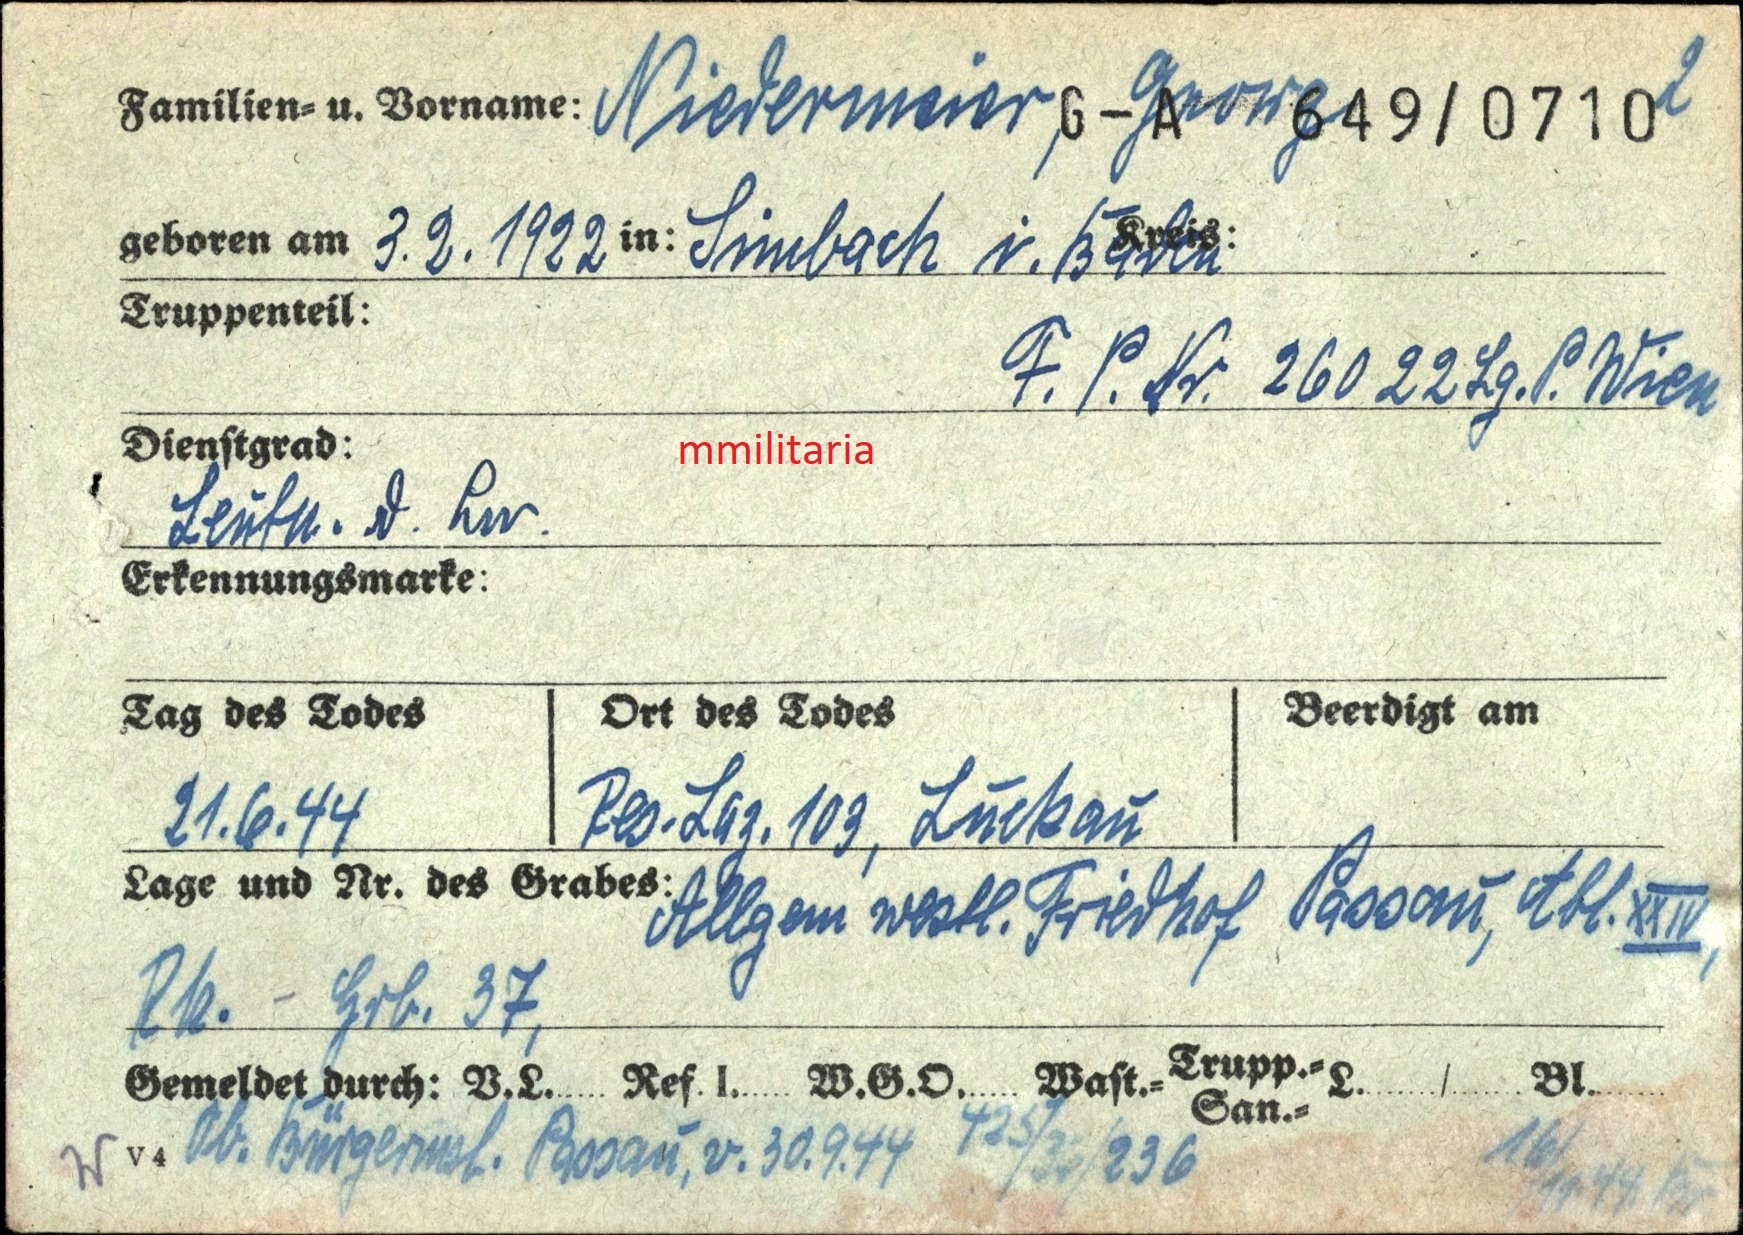 Familien- u. Vorname: Niedermeier, Georg 2
G-A 649/0710
geboren am 3.2.1922 in: Simbach i. Kreis:
Truppenteil:
F. P. Nr. 26022 Lg. P. Wien
Dienstgrad:
mmilitaria
Leutn. d. Lw.
Erkennungsmarke:
Tag des Todes Ort des Todes Beerdigt am
21.6.44 Res. Laz. 103, Luckau
Lage und Nr. des Grabes: Allgem westl. Friedhof Passau, Abt. XXIV,
Rh. - Grb. 37,
Gemeldet durch: V.L..... Ref. I..... W.G.O..... Wast.- Trupp.- San.- L......./...... Bl.......
V4 Ob. Bürgermst. Passau, v. 30.9.44 /236